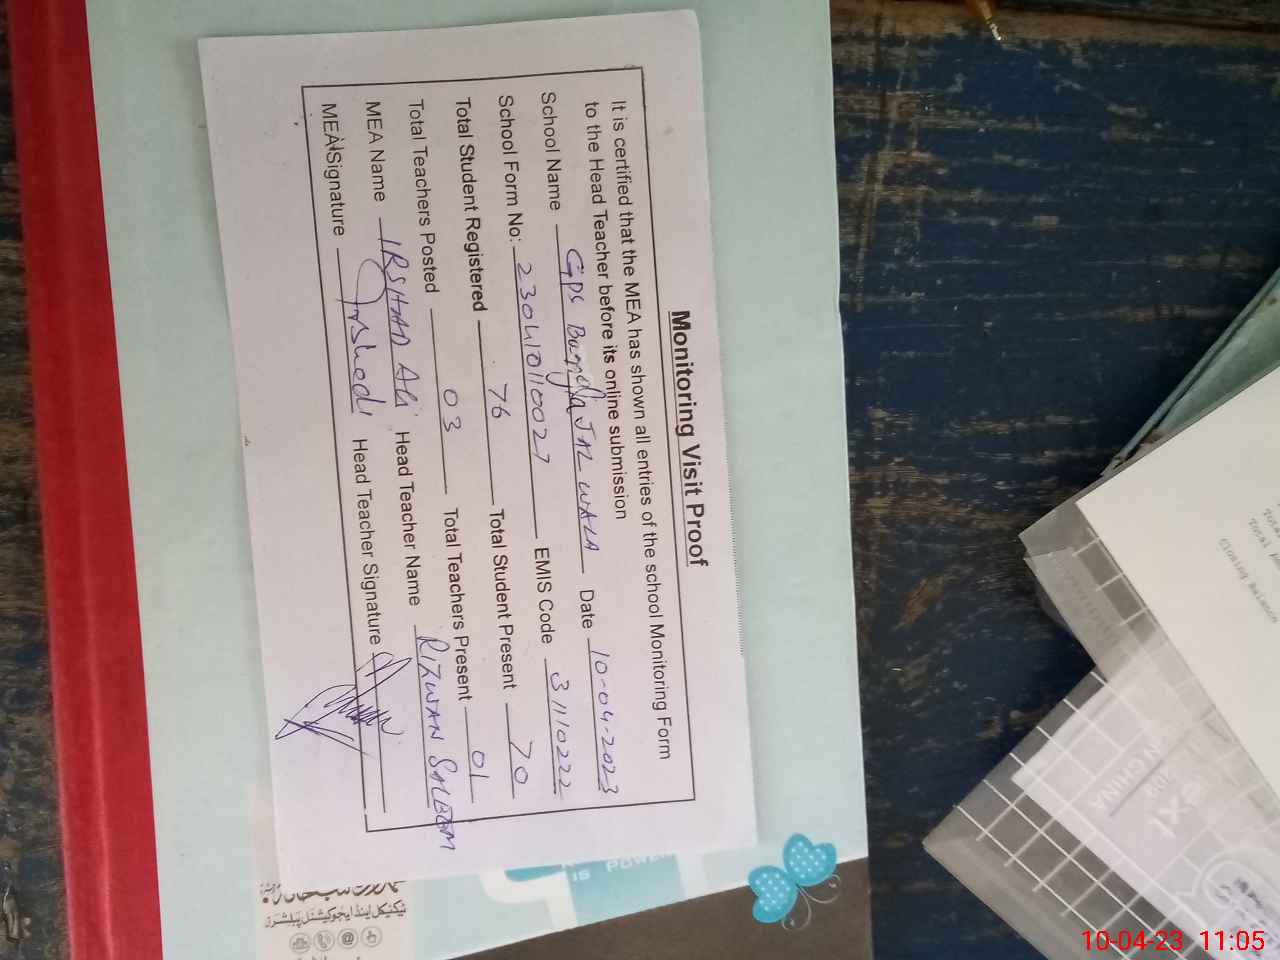 Monitoring Visit Proof
It is certified that the MEA has shown all entries of the school Monitoring Form
to the Head Teacher before its online submission
School Name GPS Bangla JAL WALA Date 10-04-2023
School Form No: 230410110027 EMIS Code 31110222
Total Student Registered 76 Total Student Present 70
Total Teachers Posted 03 Total Teachers Present 01
MEA Name IRSHAD Ali Head Teacher Name RIZWAN SALEEM
MEA Signature Irshad Head Teacher Signature
IS POWER
ٹیکنیکل اینڈ ایجوکیشنل پبلشرز
CHINA
10-04-23 11:05